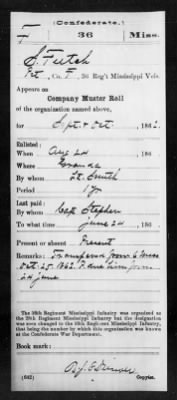 (Confederate.)
F 36 Miss.
S. Futch
Pvt, Co. F, 36 Reg't Mississippi Vols.
Appears on
Company Muster Roll
of the organization named above,
for Sept & Oct, 1862.
Enlisted:
When Aug 24, 186
Where Grenada
By whom Lt. Smith
Period 1 yr
Last paid:
By whom Capt Stephen
To what time June 24, 186
Present or absent Present
Remarks: Transferred from 6 Miss
Oct. 25. 1862. from
24 June
The 36th Regiment Mississippi Infantry was organized as
the 36th Regiment Mississippi Infantry but the designation
was now changed to the 36th Regiment Mississippi Infantry,
that being the number by which this organization was known
at the Confederate War Department.
Book mark:
(642)
Copyist.